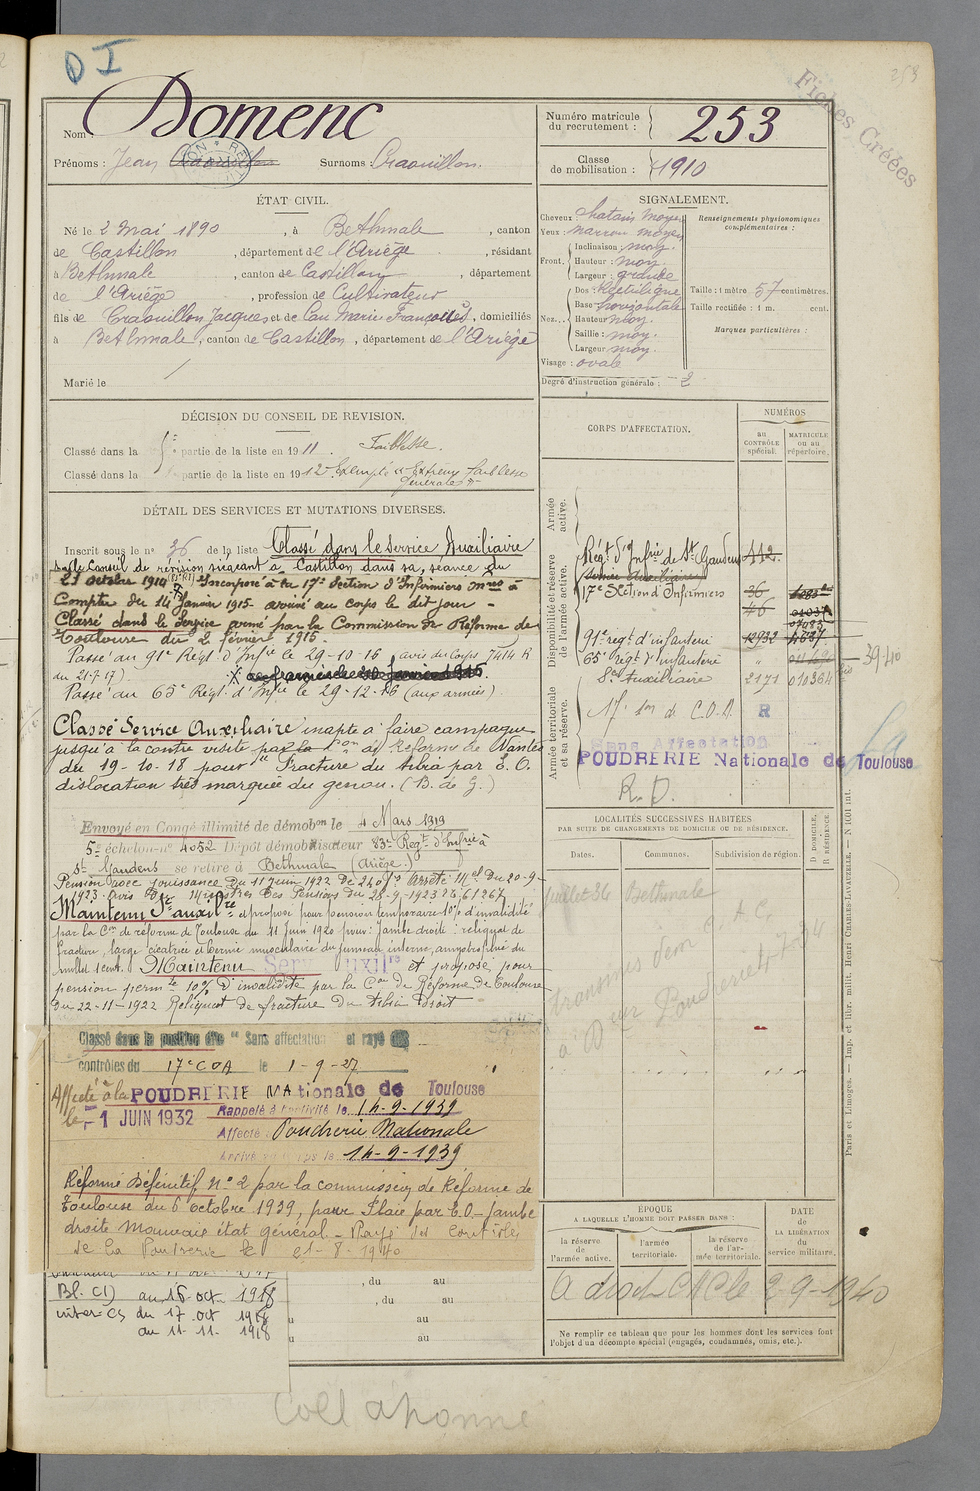 D I
253
Fiches Créées
Nom : Domenc
Prénoms : Jean Surnoms Craouillon.
Numéro matricule du recrutement : 253
Classe de mobilisation : 1910
ÉTAT CIVIL.
Né le 2 Mai 1890, à Bethmale, canton
de Castillon, département de l'Ariège, résidant
à Bethmale, canton de Castillon, département
de l'Ariège, profession de Cultivateur
fils de Craouillon Jacques et de Cau Marie Françoise, domiciliés
à Bethmale, canton de Castillon, département de l'Ariège
Marié le /
SIGNALEMENT.
Cheveux : chatain moyen
Yeux : marron moyen
Front. Inclinaison : moy.
Hauteur : moy.
Largeur : grande
Nez... Dos : Rectiligne
Base horizontale
Hauteur moy.
Saillie : moy.
Largeur moy.
Visage : ovale
Degré d'instruction générale : 2
Renseignements physionomiques complémentaires :
Taille : 1 mètre 57 centimètres.
Taille rectifiée : 1 m. cent.
Marques particulières :
DÉCISION DU CONSEIL DE REVISION.
Classé dans la 5e partie de la liste en 1911. Faiblesse.
Classé dans la partie de la liste en 1912 Exempté Extrême faiblesse
générale
DÉTAIL DES SERVICES ET MUTATIONS DIVERSES.
Inscrit sous le n° 36 de la liste Classé dans le Service Auxiliaire
par le Conseil de révision siégeant à Castillon dans sa séance du
23 octobre 1914 Incorporé à la 17e Section d'Infirmiers
Compter du 14 Janvier 1915 arrivé au corps le dit jour -
Classé dans le service armé par la Commission de Réforme de
Toulouse du 2 février 1915.
Passé au 91e Régt. d'Infie le 29-10-16 (avis du Corps 7414 R
du 21-7-17)
Passé au 65e Régt. d'Infie le 29-12-16 (aux armées)
Classé Service Auxiliaire inapte à faire campagne
jusqu'à la contre visite par la Con de Réforme de Nantes
du 19-10-18 pour Fracture du tibia par E.O.
dislocation très marquée du genou. (B. de G.)
Envoyé en Congé illimité de démobon le 4 Mars 1919
5e échelon n° 4052 Dépôt démobilisateur 83e Régt d'Infie à
St Gaudens se retire à Bethmale (Ariège)
Pension avec jouissance du 11 Juin 1922 de 240 frs Arrêté Miel du 20-9-
1923 avis du Ministre des Pensions du 28-9-1923
Maintenu Sce auxilre et proposé pour pension temporaire 10% d'invalidité
par la Con de réforme de Toulouse du 11 Juin 1920 pour : jambe droite : reliquat de
fracture, large cicatrice et hernie musculaire du jumeau interne, amyotrophie du
mollet 1 cent. Maintenu Serv auxilre et proposé pour
pension permte 10% d'invalidité par la Con de Réforme de Toulouse
du 22-11-1922 Reliquat de fracture du tibia Droit
Classé dans la position dite "Sans affectation et rayé des
contrôles du 17e COA le 1-9-27
Affecté à la POUDRERIE Nationale de Toulouse
le 1 JUIN 1932
Rappelé à l'activité le 14-9-1939
Affecté Poudrerie Nationale
Arrivé au corps le 14-9-1939
Réformé Définitif N° 2 par la commission de Réforme de
Toulouse du 6 Octobre 1939, pour Plaie par E.O - Jambe
droite Mauvais état général - Rayé des Contrôles
de la Poudrerie le 21-8-1940
au 16 oct. 1918
inter = CS du 17 oct 1918
au 11-11-1918
, du au
, du au
au
au
CORPS D'AFFECTATION.
NUMÉROS
au CONTRÔLE spécial.
MATRICULE ou au répertoire.
Armée active.
Disponibilité et réserve de l'armée active.
Armée territoriale et sa réserve.
Régt d'Infie de St Gaudens 442
Service Auxiliaire
17e Section d'Infirmiers 36
46
91e régt d'infanterie 12932 4637
65e régt d'infanterie "
39-40
Sce Auxiliaire 2171 010364
17e Son de C.O.A. R
Sans Affectation
POUDRERIE Nationale de Toulouse
R.D.
LOCALITÉS SUCCESSIVES HABITÉES
PAR SUITE DE CHANGEMENTS DE DOMICILE OU DE RÉSIDENCE.
Dates. Communes. Subdivision de région. D DOMICILE, R RÉSIDENCE.
Juillet 36 Bethmale
Paris et Limoges. — Imp. et libr. milit. Henri CHARLES-LAVAUZELLE. — N° 1001 int.
ÉPOQUE
A LAQUELLE L'HOMME DOIT PASSER DANS :
la réserve de l'armée active.
l'armée territoriale.
la réserve de l'armée territoriale.
DATE de LA LIBÉRATION du service militaire.
A droit CAC le 2-9-1940
Ne remplir ce tableau que pour les hommes dont les services font
l'objet d'un décompte spécial (engagés, condamnés, omis, etc.).